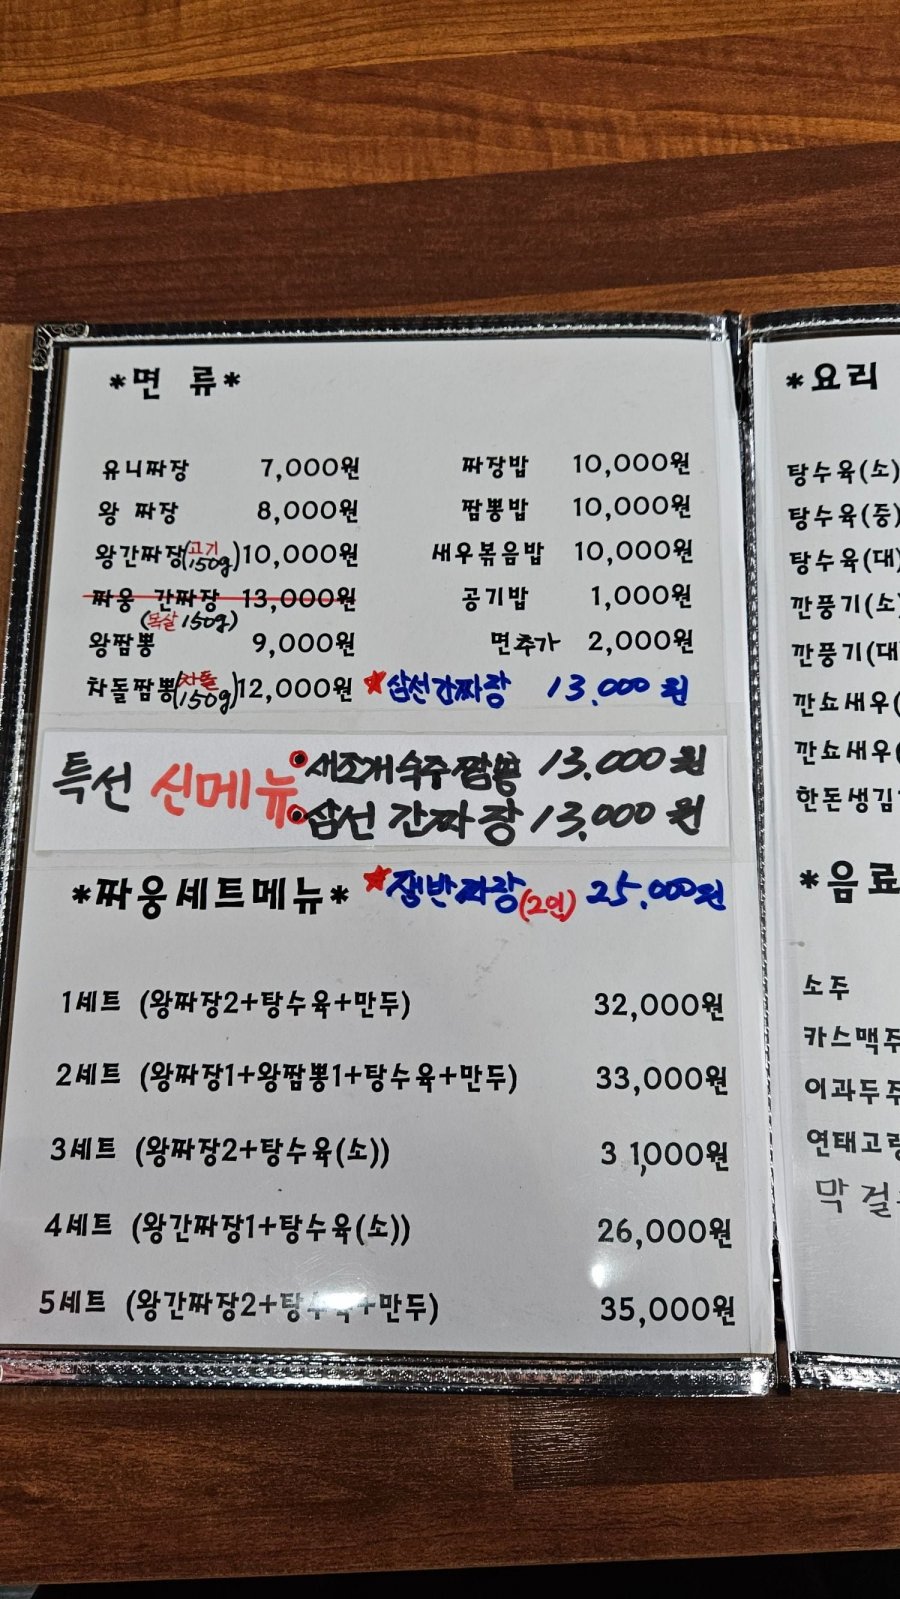 *면 류*
유니짜장 7,000원
왕 짜장 8,000원
왕간짜장(고기 150g) 10,000원
짜웅 간짜장 13,000원
(목살 150g)
왕짬뽕 9,000원
차돌짬뽕(차돌 150g) 12,000원
짜장밥 10,000원
짬뽕밥 10,000원
새우볶음밥 10,000원
공기밥 1,000원
면추가 2,000원
★삼선간짜장 13,000원
특선 신메뉴
새조개숙주짬뽕 13,000원
삼선 간짜장 13,000원
*짜웅세트메뉴*
★쟁반짜장(2인) 25,000원
1세트 (왕짜장2+탕수육+만두) 32,000원
2세트 (왕짜장1+왕짬뽕1+탕수육+만두) 33,000원
3세트 (왕짜장2+탕수육(소)) 31,000원
4세트 (왕간짜장1+탕수육(소)) 26,000원
5세트 (왕간짜장2+탕수육+만두) 35,000원
*요리
탕수육(소)
탕수육(중)
탕수육(대)
깐풍기(소)
깐풍기(대
깐쇼새우(
깐쇼새우(
한돈생김
*음료
소주
카스맥주
이과두주
연태고량
막걸